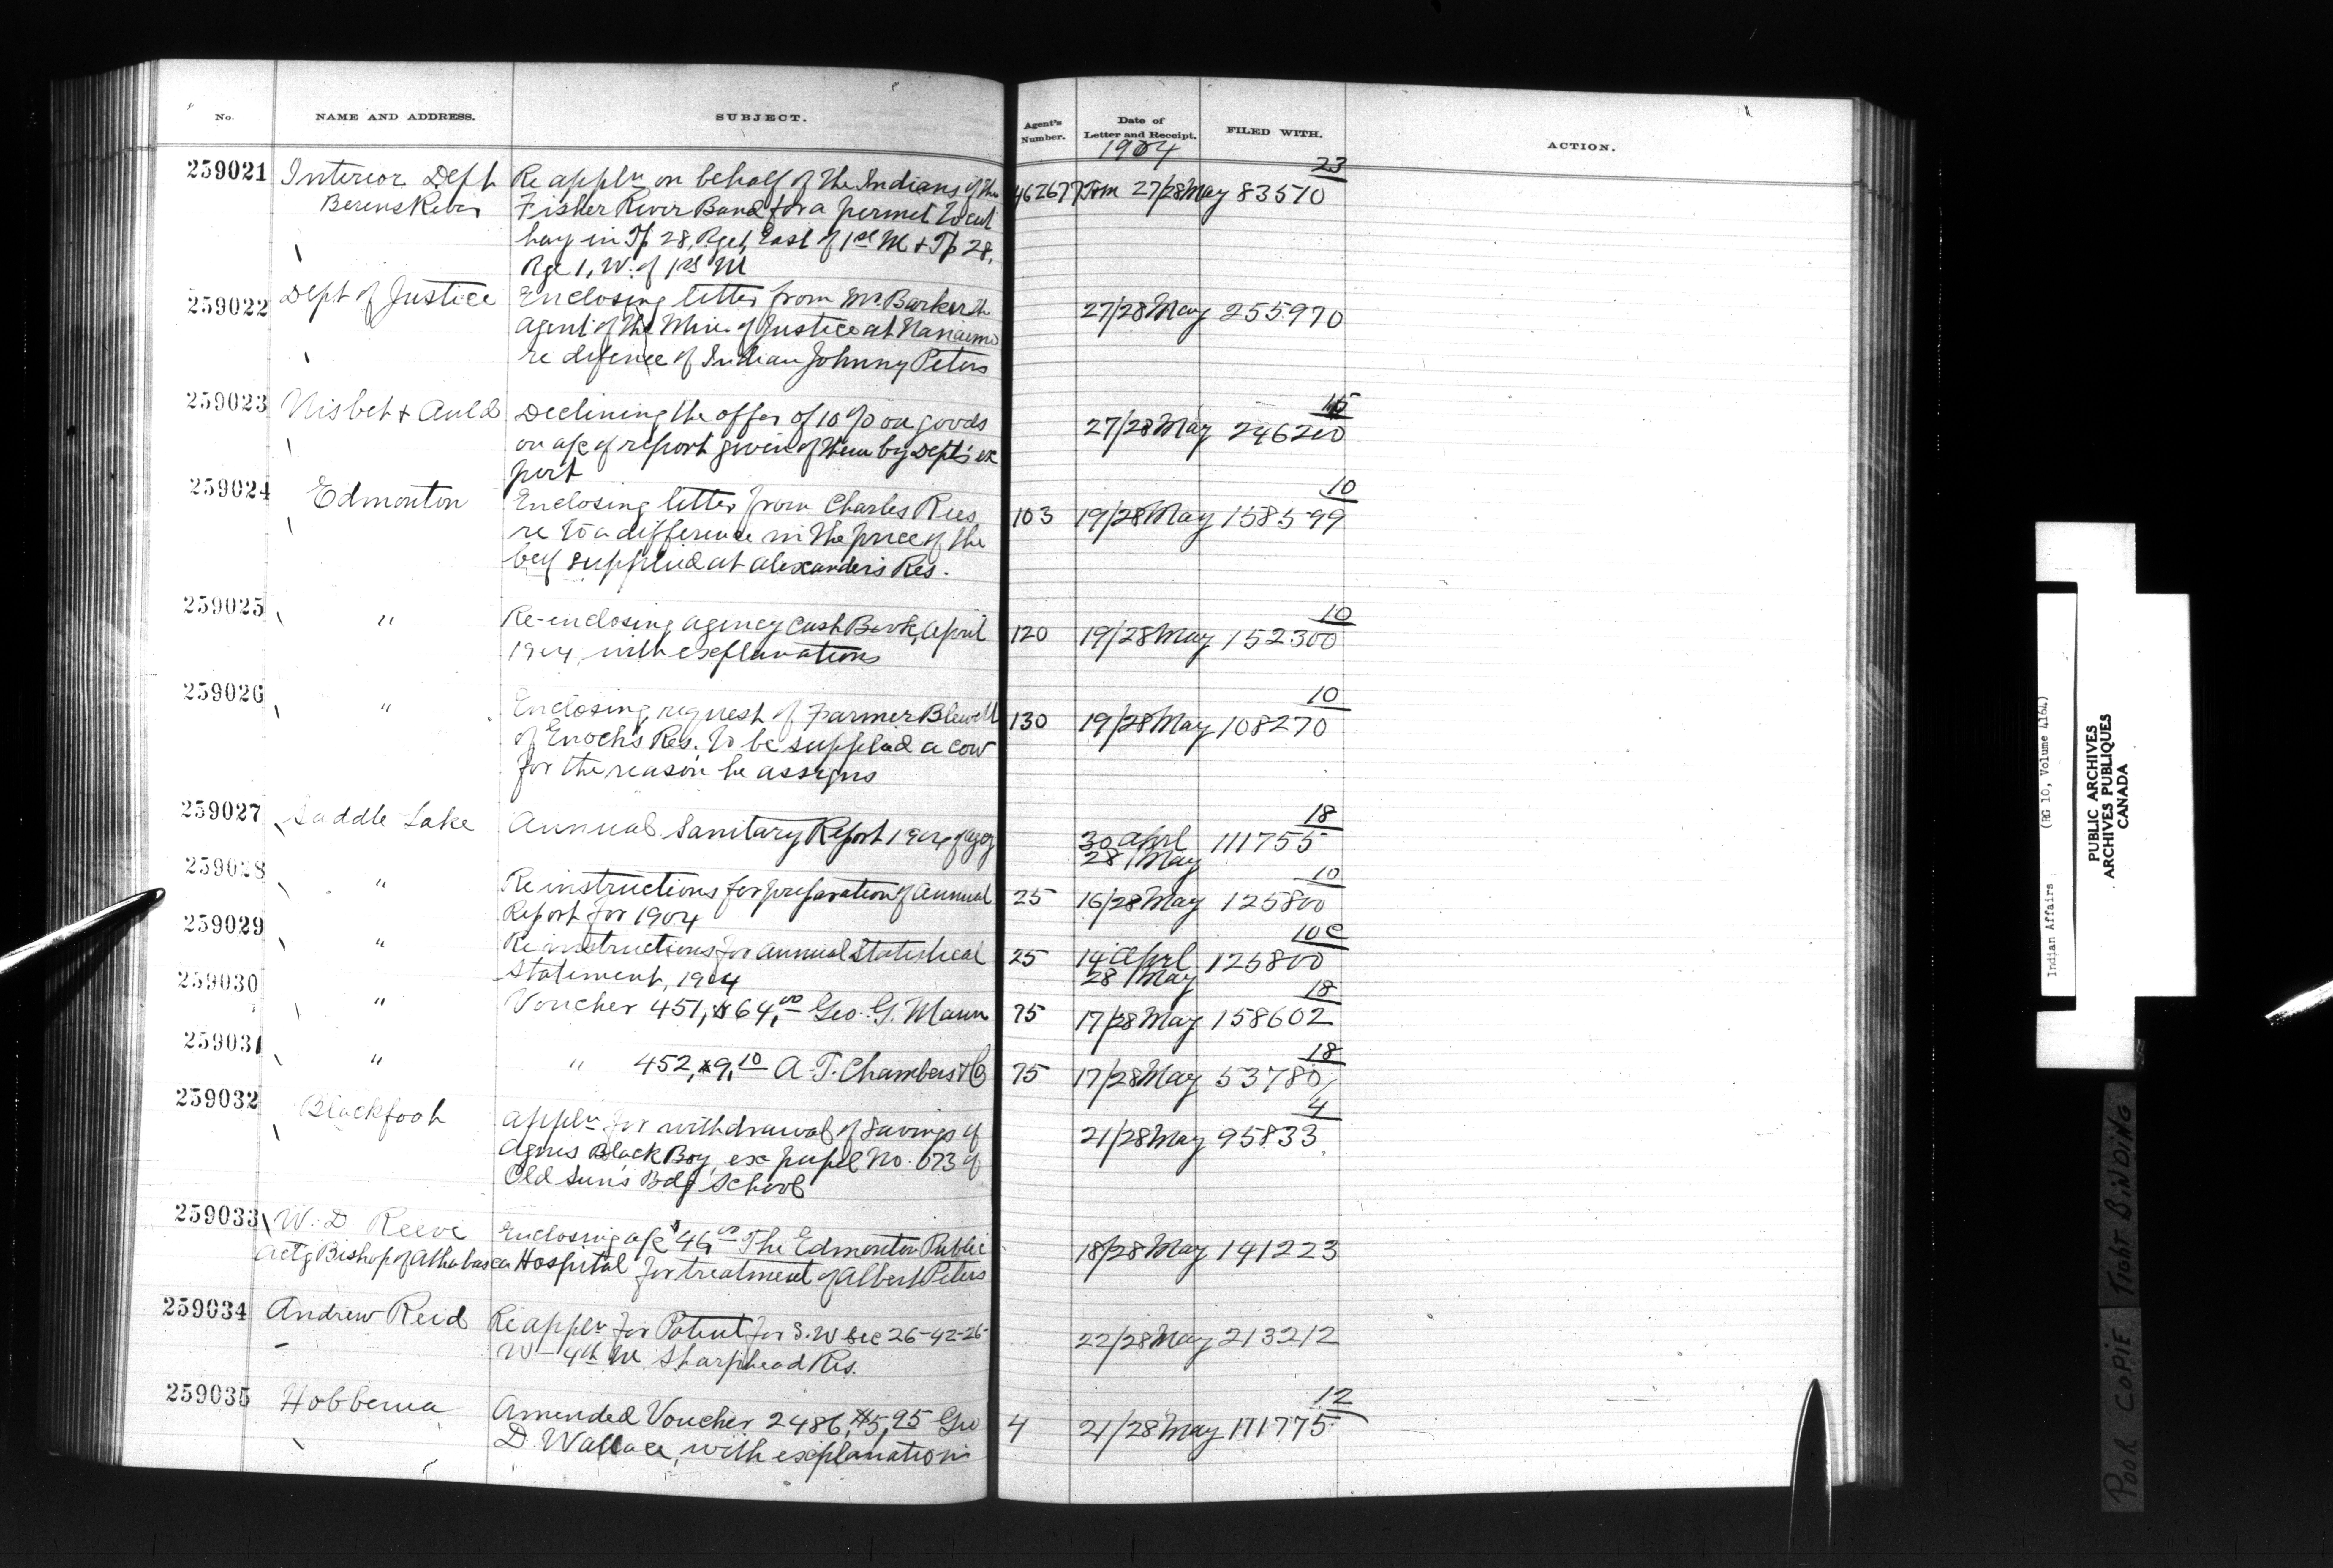 No. NAME AND ADDRESS. SUBJECT. Agent's Number. Date of Letter and Receipt. FILED WITH. ACTION.
1904
23
259021 Interior Dept Re appln on behalf of the Indians of the 462677 27/28 May 83570
Berens River Fisher River Band for a permit to cut
hay in Tp 28, Rge 1, East of 1st M & Tp 28,
Rge 1, W. of 1st M
259022 Dept of Justice Enclosing letter from Mr. Barker the 27/28 May 255970
agent of the Min. of Justice at Nanaimo
re defence of Indian Johnny Peters
15
259023 Nisbet & Auld Declining the offer of 10 % on goods 27/28 May 246200
on a/c of report given of them by Dept's ex
pert
10
259024 Edmonton Enclosing letter from Charles Rees 103 19/28 May 158599
re to a difference in the price of the
beef supplied at Alexander's Res.
10
259025 " Re-enclosing agency Cash Book, April 120 19/28 May 152300
1904, with explanations
10
259026 " Enclosing request of Farmer Blewett 130 19/28 May 108270
of Enoch's Res. to be supplied a cow
for the reason he assigns
18
259027 Saddle Lake Annual Sanitary Report 1904 of agy 30 Aprl 111755
28 May
10
259028 " Re instructions for preparation of Annual 25 16/28 May 125800
Report for 1904
10c
259029 " Re instructions for Annual Statistical 25 14 Aprl 125800
Statement, 1904 28 May
18
259030 " Voucher 451, $64.00 Geo. G. Mann 75 17/28 May 158602
18
259031 " " 452, $9.10 A. T. Chambers & Co 75 17/28 May 53780
4
259032 Blackfoot Appln for withdrawal of savings of 21/28 May 95833
Agnes Black Boy, ex pupil No. 073 of
Old Sun's Bdg School
259033 W. D. Reeve Enclosing a/c $46.00 The Edmonton Public 18/28 May 141223
Actg Bishop of Athabasca Hospital for treatment of Albert Peters
259034 Andrew Reid Re appln for Patent for S.W Sec 26-42-26- 22/28 May 213212
W-4th M Sharphead Res.
12
259035 Hobbema Amended Voucher 2486, $5,95 Geo 4 21/28 May 111775
D. Wallace, with explanations
Indian Affairs (RG 10, Volume 4164)
PUBLIC ARCHIVES
ARCHIVES PUBLIQUES
CANADA
POOR COPIE TIGHT BINDING